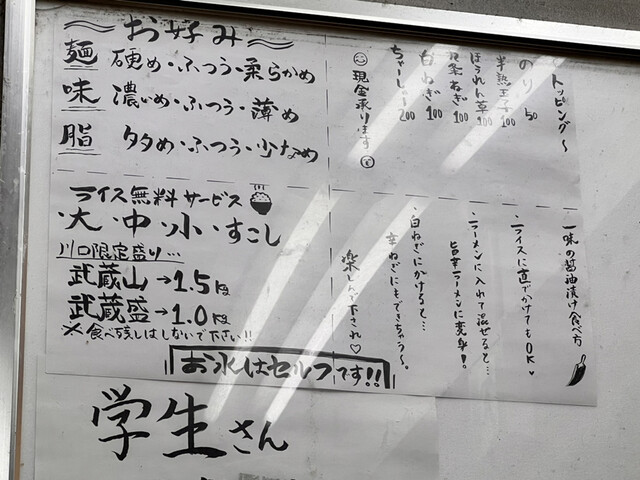 〜お好み〜
麺 硬め・ふつう・柔らかめ
味 濃いめ・ふつう・薄め
脂 多め・ふつう・少なめ
ライス無料サービス
・大・中・小・すこし
川口限定盛り…
武蔵山→1.5kg
武蔵盛→1.0kg
※食べ残しはしないで下さい!!
トッピング〜
のり 50
半熟玉子 100
ほうれん草 100
九条ねぎ 100
白ねぎ 100
ちゃーしゅー 200
現金承ります
一味の醤油漬け食べ方
・ライスに直でかけてもOK♥
・ラーメンに入れて混ぜると…
旨辛ラーメンに変身!
・白ねぎにかけると…
辛ねぎにもできちゃう〜。
楽しんで下され♡
お水はセルフです!!
学生さん